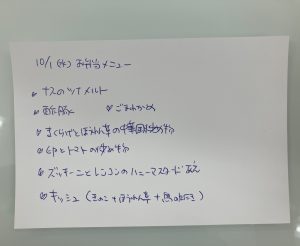 10/1(水) お弁当メニュー
ナスのツナメルト
酢豚 ごまわかめ
きくらげとほうれん草の中華風炒め物
卵とトマトの炒め物
ズッキーニとレンコンのハニーマスタードあえ
キッシュ(きのこ+ほうれん草+鳥の